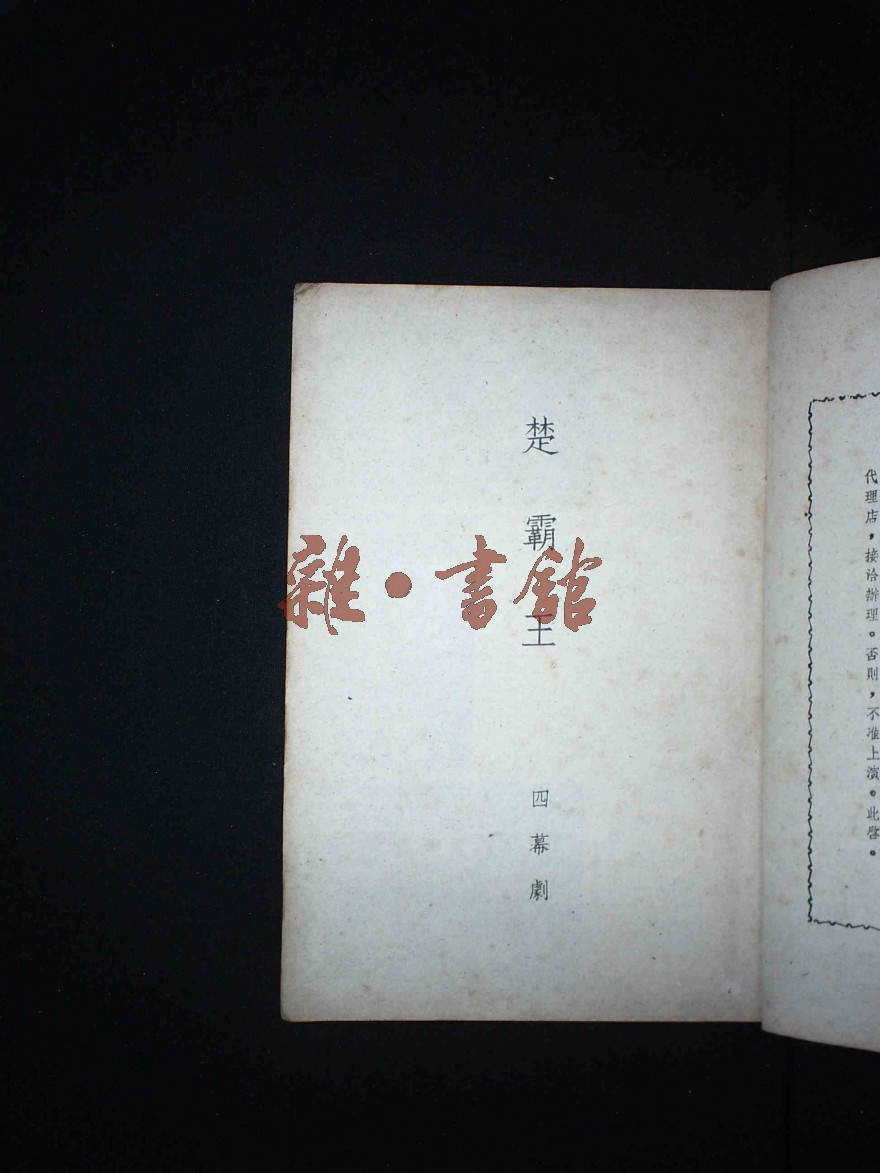 代理店，接洽辦理。否則，不准上演。此啓。
楚霸王
四幕劇
雜·書館